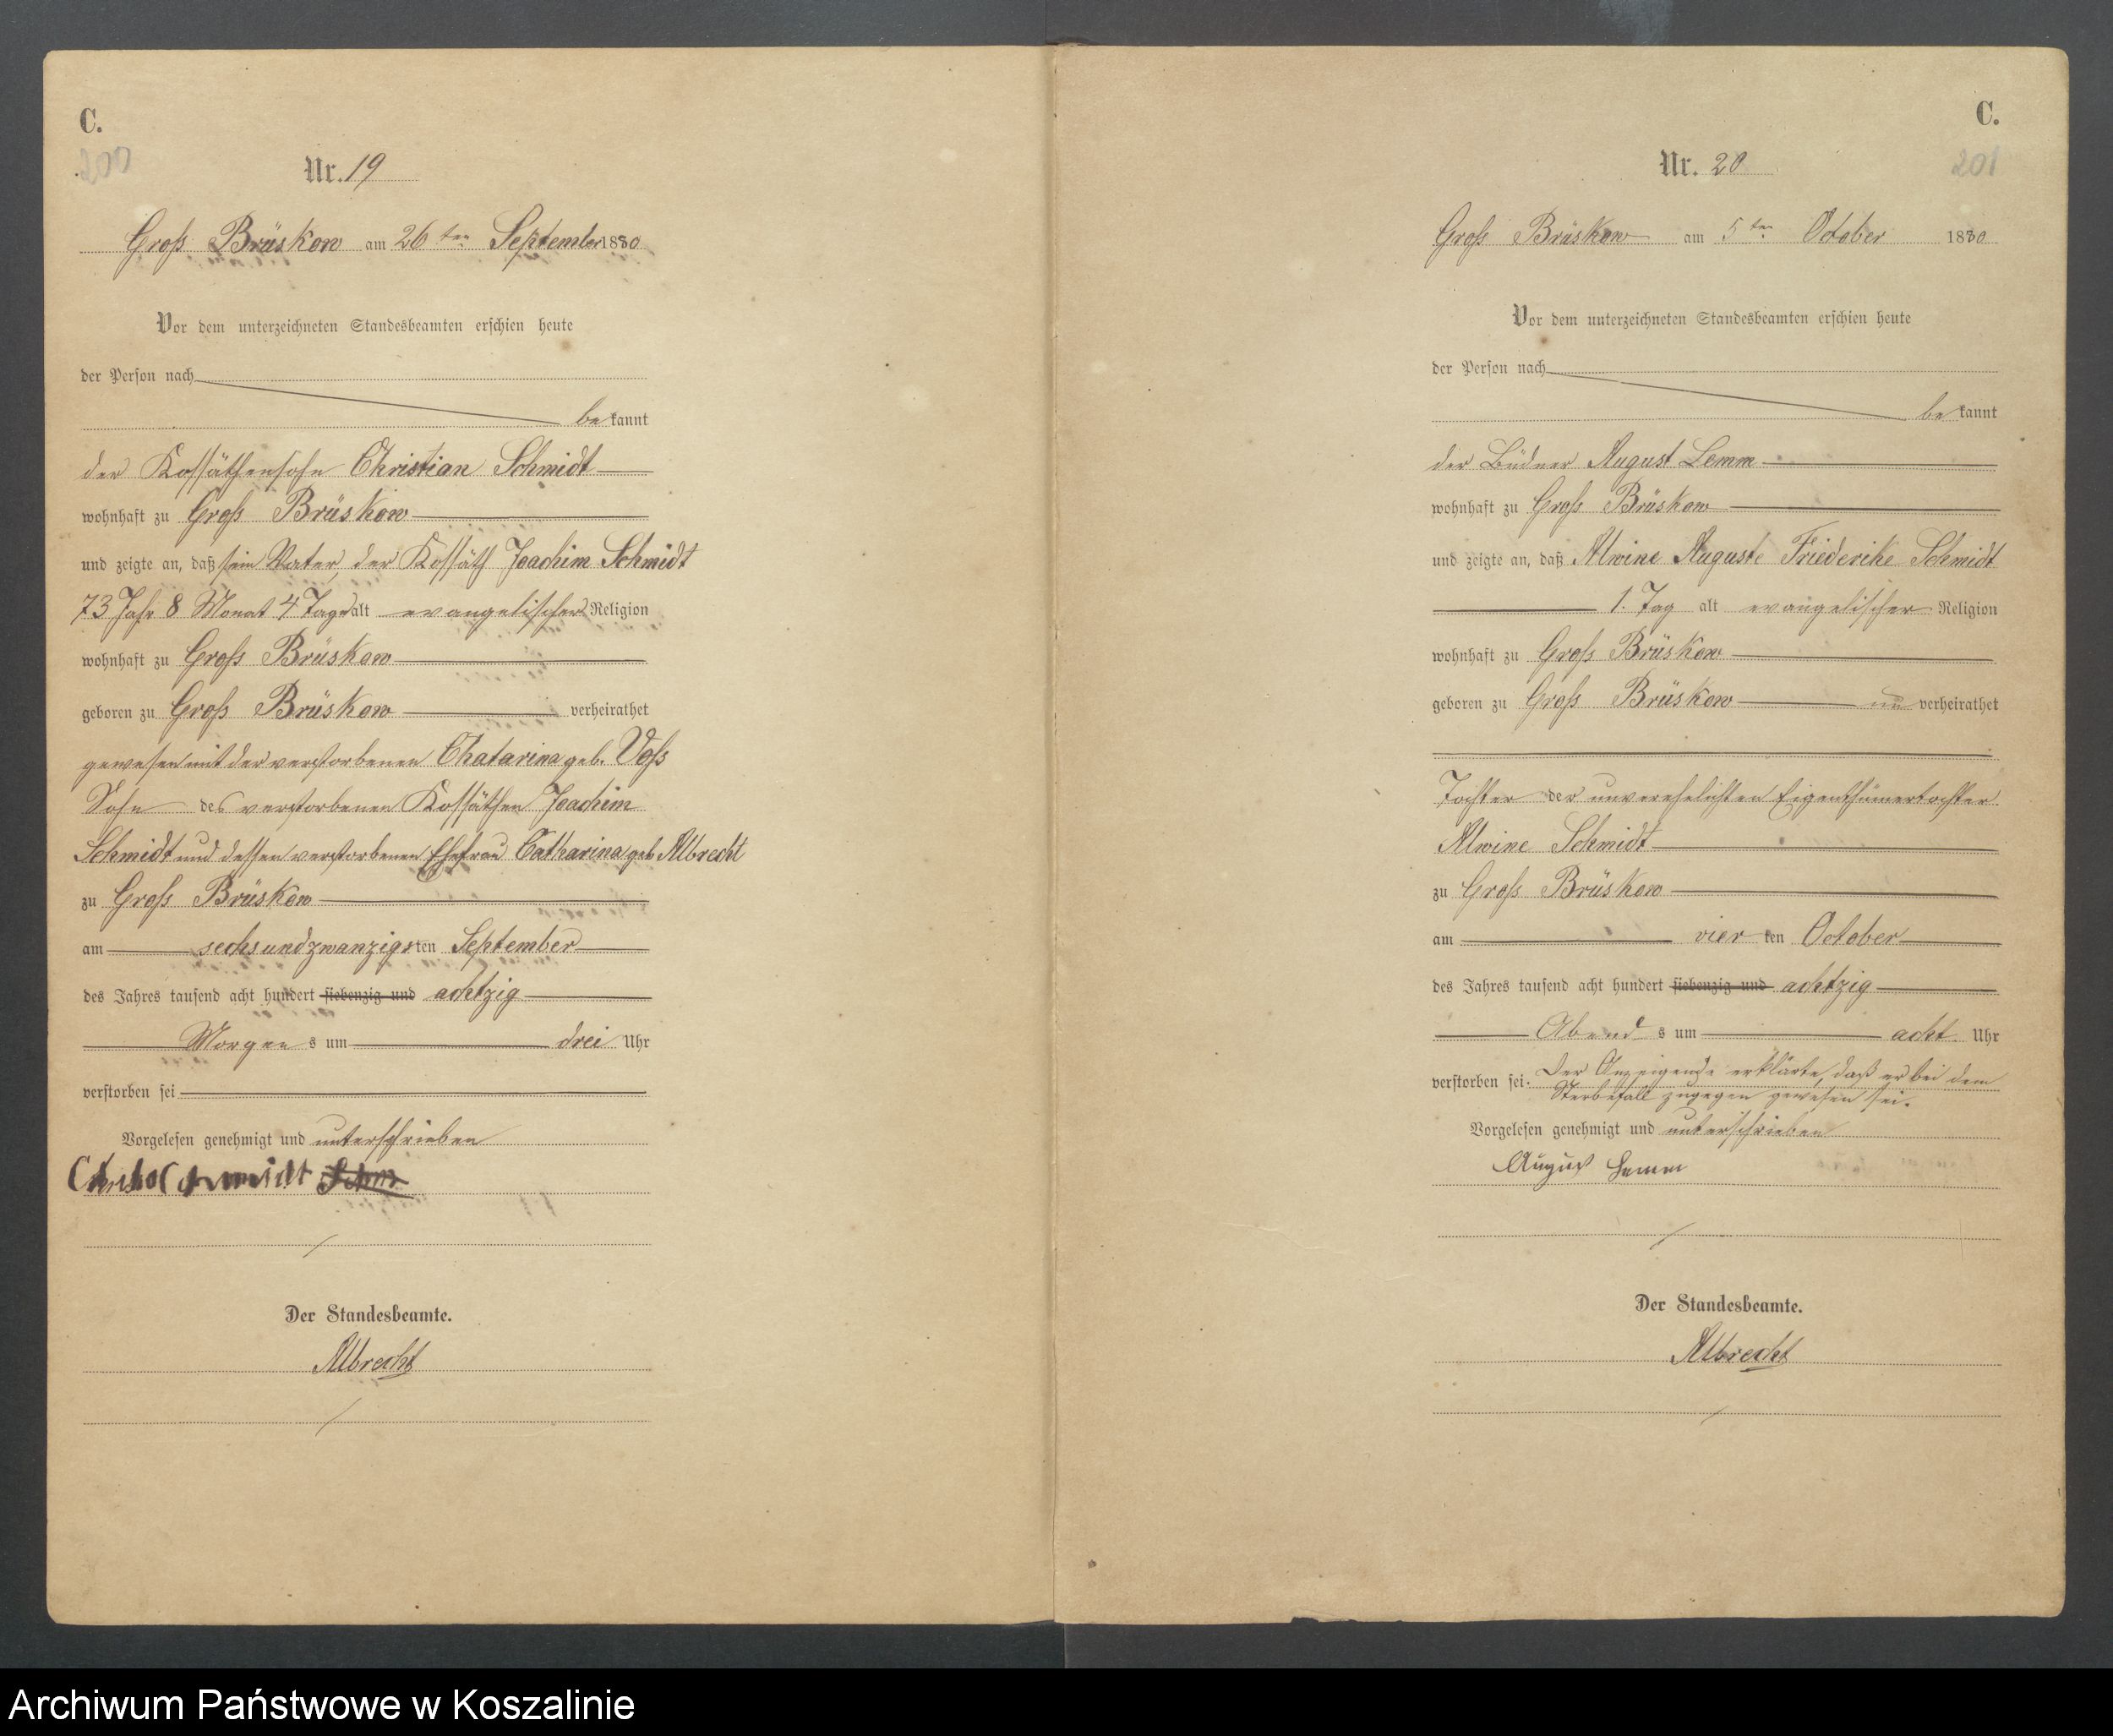 C.
200
Nr. 19
Groß Brüskow am 26 ten September 1880
Vor dem unterzeichneten Standesbeamten erschien heute
der Person nach
bekannt
der Kossäthensohn Christian Schmidt
wohnhaft zu Groß Brüskow
und zeigte an, daß sein Vater, der Kossäth Joachim Schmidt
73 Jahr 8 Monat 4 Tage alt evangelischer Religion
wohnhaft zu Groß Brüskow
geboren zu Groß Brüskow verheirathet
gewesen mit der verstorbenen Chatarina geb. Voß
Sohn des verstorbenen Kossäthen Joachim
Schmidt und dessen verstorbenen Ehefrau Catharina geb Albrecht
zu Groß Brüskow
am sechsundzwanzigsten September
des Jahres tausend acht hundert siebenzig und achtzig
Morgens um drei Uhr
verstorben sei
Vorgelesen genehmigt und unterschrieben
Schmidt
Der Standesbeamte.
Albrecht
C.
201
Nr. 20
Groß Brüskow am 5 ten October 1880
Vor dem unterzeichneten Standesbeamten erschien heute
der Person nach
bekannt
der Büdner August Lemm
wohnhaft zu Groß Brüskow
und zeigte an, daß Alwine Auguste Friederike Schmidt
1. Tag alt evangelischer Religion
wohnhaft zu Groß Brüskow
geboren zu Groß Brüskow unverheirathet
Tochter der unverehelichten Eigenthümertochter
Alwine Schmidt
zu Groß Brüskow
am vierten October
des Jahres tausend acht hundert siebenzig und achtzig
Abends um acht Uhr
verstorben sei. Der Anzeigende erklärte, daß er bei dem
Sterbefall zugegen gewesen sei.
Vorgelesen genehmigt und unterschrieben
August Lemm
Der Standesbeamte.
Albrecht
Archiwum Państwowe w Koszalinie